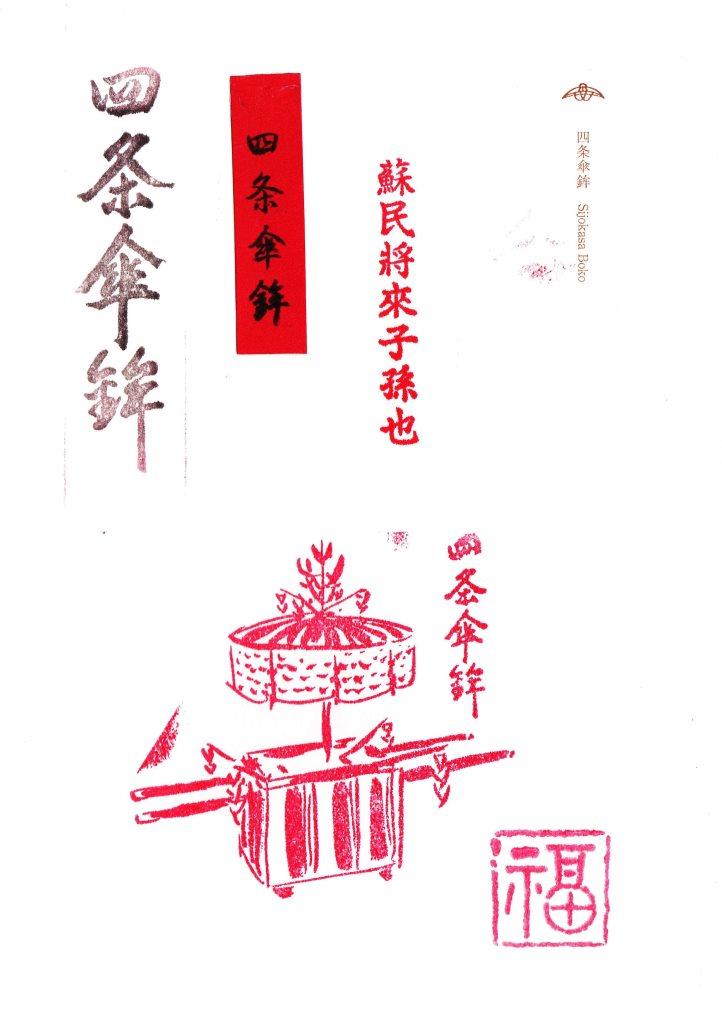 四条傘鉾 Sijokasa Boko
蘇民將來子孫也
四条傘鉾
四条傘鉾
四条傘鉾
福